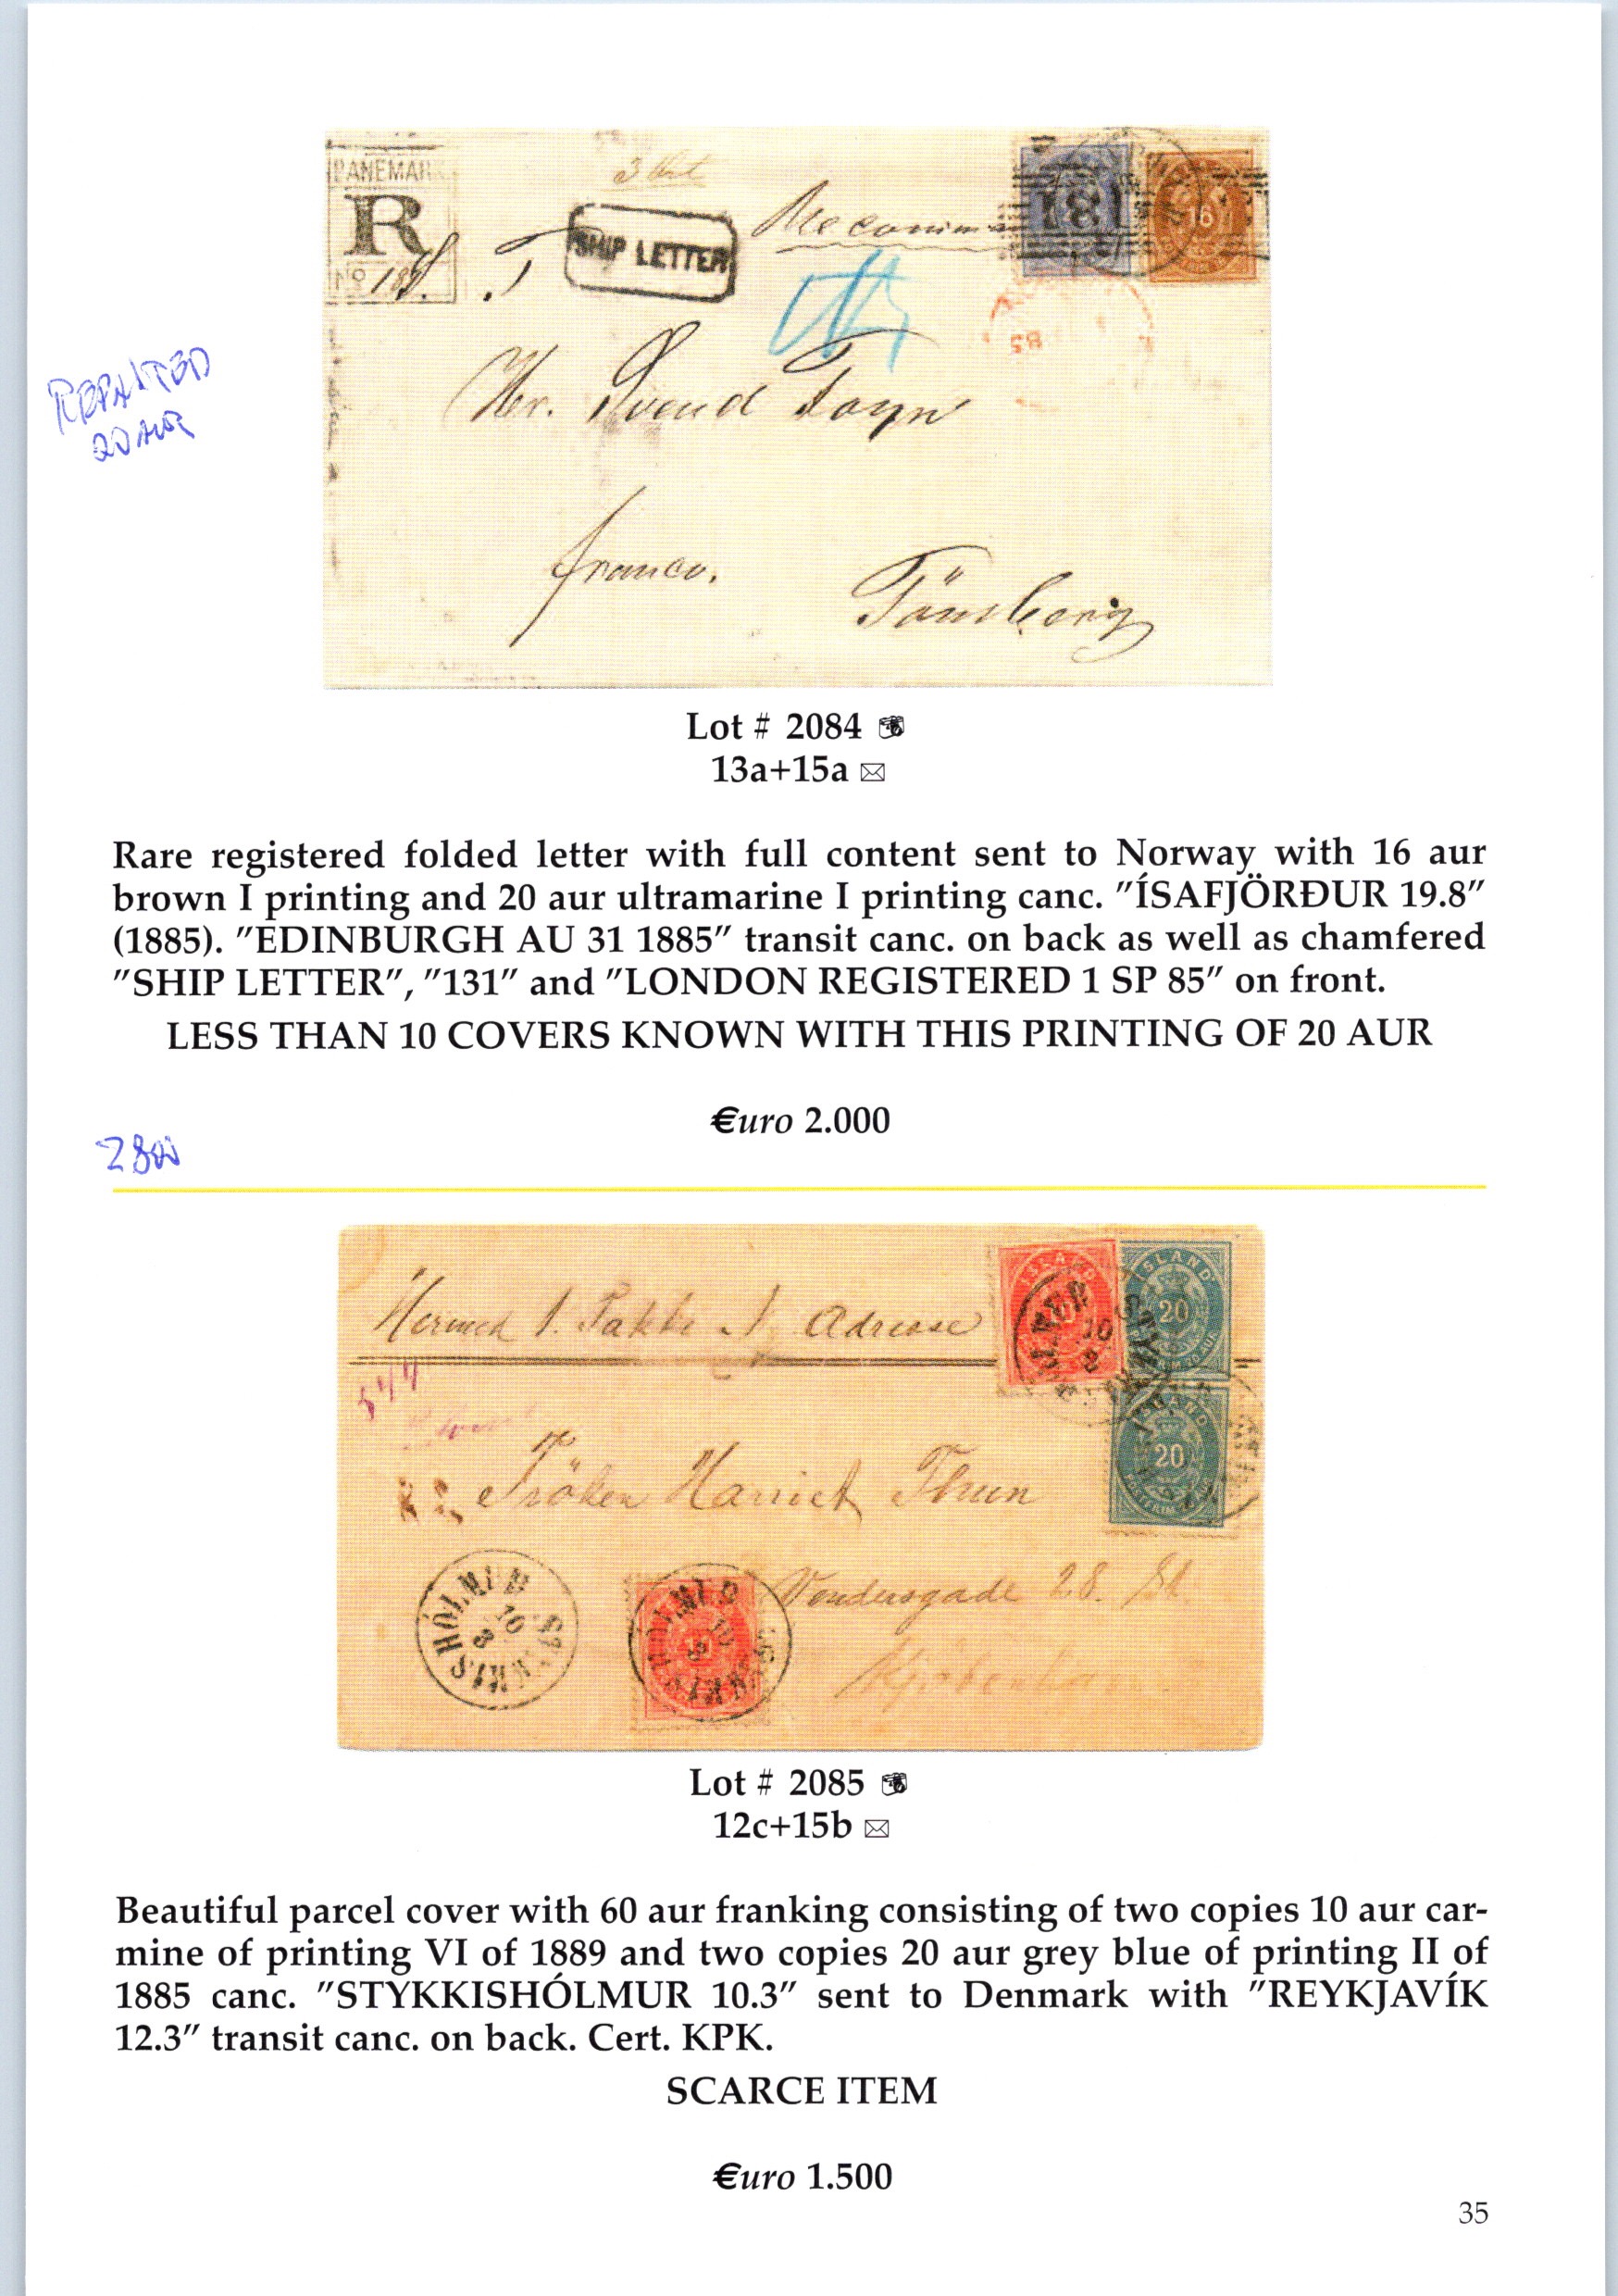 DANEMARK
R
No
SHIP LETTER
131
16
85
Hr. Svend Foyn
franco.
Tönsberg
REPAINTED
20 AUR
Lot # 2084
13a+15a
Rare registered folded letter with full content sent to Norway with 16 aur
brown I printing and 20 aur ultramarine I printing canc. "ÍSAFJÖRÐUR 19.8"
(1885). "EDINBURGH AU 31 1885" transit canc. on back as well as chamfered
"SHIP LETTER", "131" and "LONDON REGISTERED 1 SP 85" on front.
LESS THAN 10 COVERS KNOWN WITH THIS PRINTING OF 20 AUR
€uro 2.000
2800
Hermed 1. Pakke Adresse
ÍSLAND
20
ÍSLAND
20
Fröken Harriet Thun
Vendersgade 28. St.
Kjöbenhavn
STYKKISHÓLMUR
10
3
STYKKISHÓLMUR
10
3
Lot # 2085
12c+15b
Beautiful parcel cover with 60 aur franking consisting of two copies 10 aur car-
mine of printing VI of 1889 and two copies 20 aur grey blue of printing II of
1885 canc. "STYKKISHÓLMUR 10.3" sent to Denmark with "REYKJAVÍK
12.3" transit canc. on back. Cert. KPK.
SCARCE ITEM
€uro 1.500
35